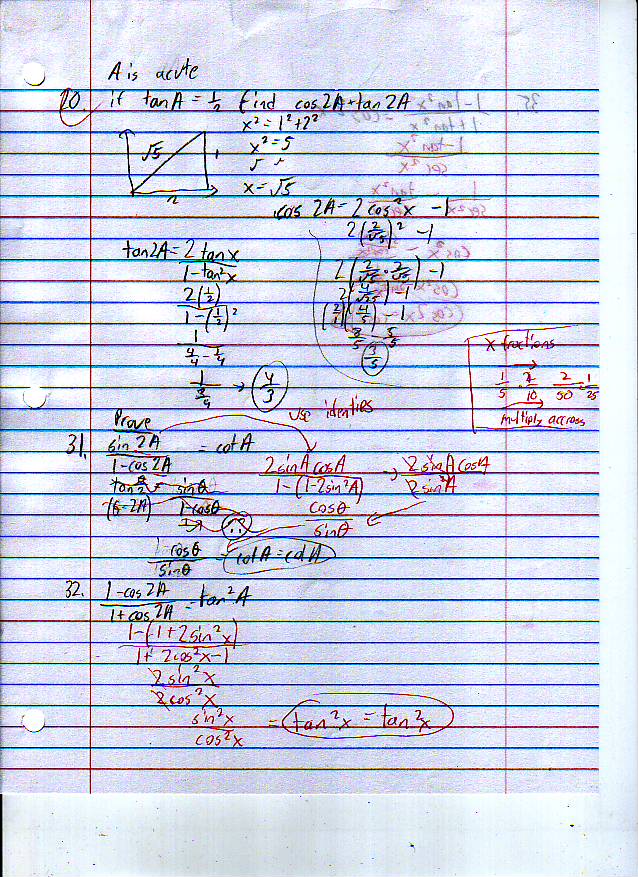 A is acute
20. if tan A = 1/2 find cos 2A + tan 2A
x² = 1² + 2²
x² = 5
√ √
x = √5
√5
1
2
cos 2A = 2cos²x - 1
2(2/√5)² - 1
2(2/√5 · 2/√5) - 1
2(4/√25) - 1
(2/1)(4/5) - 1
8/5 - 5/5
3/5
tan2A = 2 tan x / 1 - tan²x
2(1/2) / 1 - (1/2)²
1 / 4/4 - 1/4
1 / 3/4 → 4/3
x fractions
1/5 · 2/10 = 2/50 = 1/25
multiply accross
use identies
Prove
31. sin 2A / 1 - cos 2A = cot A
2sinA cosA / 1 - (1 - 2sin²A) → 2 sinA cosA / 2 sin²A
sinθ / 1 - cosθ
cosθ / sinθ
1 - cosθ / sinθ = cot A = cot A
32. 1 - cos 2A / 1 + cos 2A = tan²A
1 - (1 + 2sin²x) / 1 + 2cos²x - 1
2 sin²x / 2 cos²x
sin²x / cos²x = tan²x = tan²x